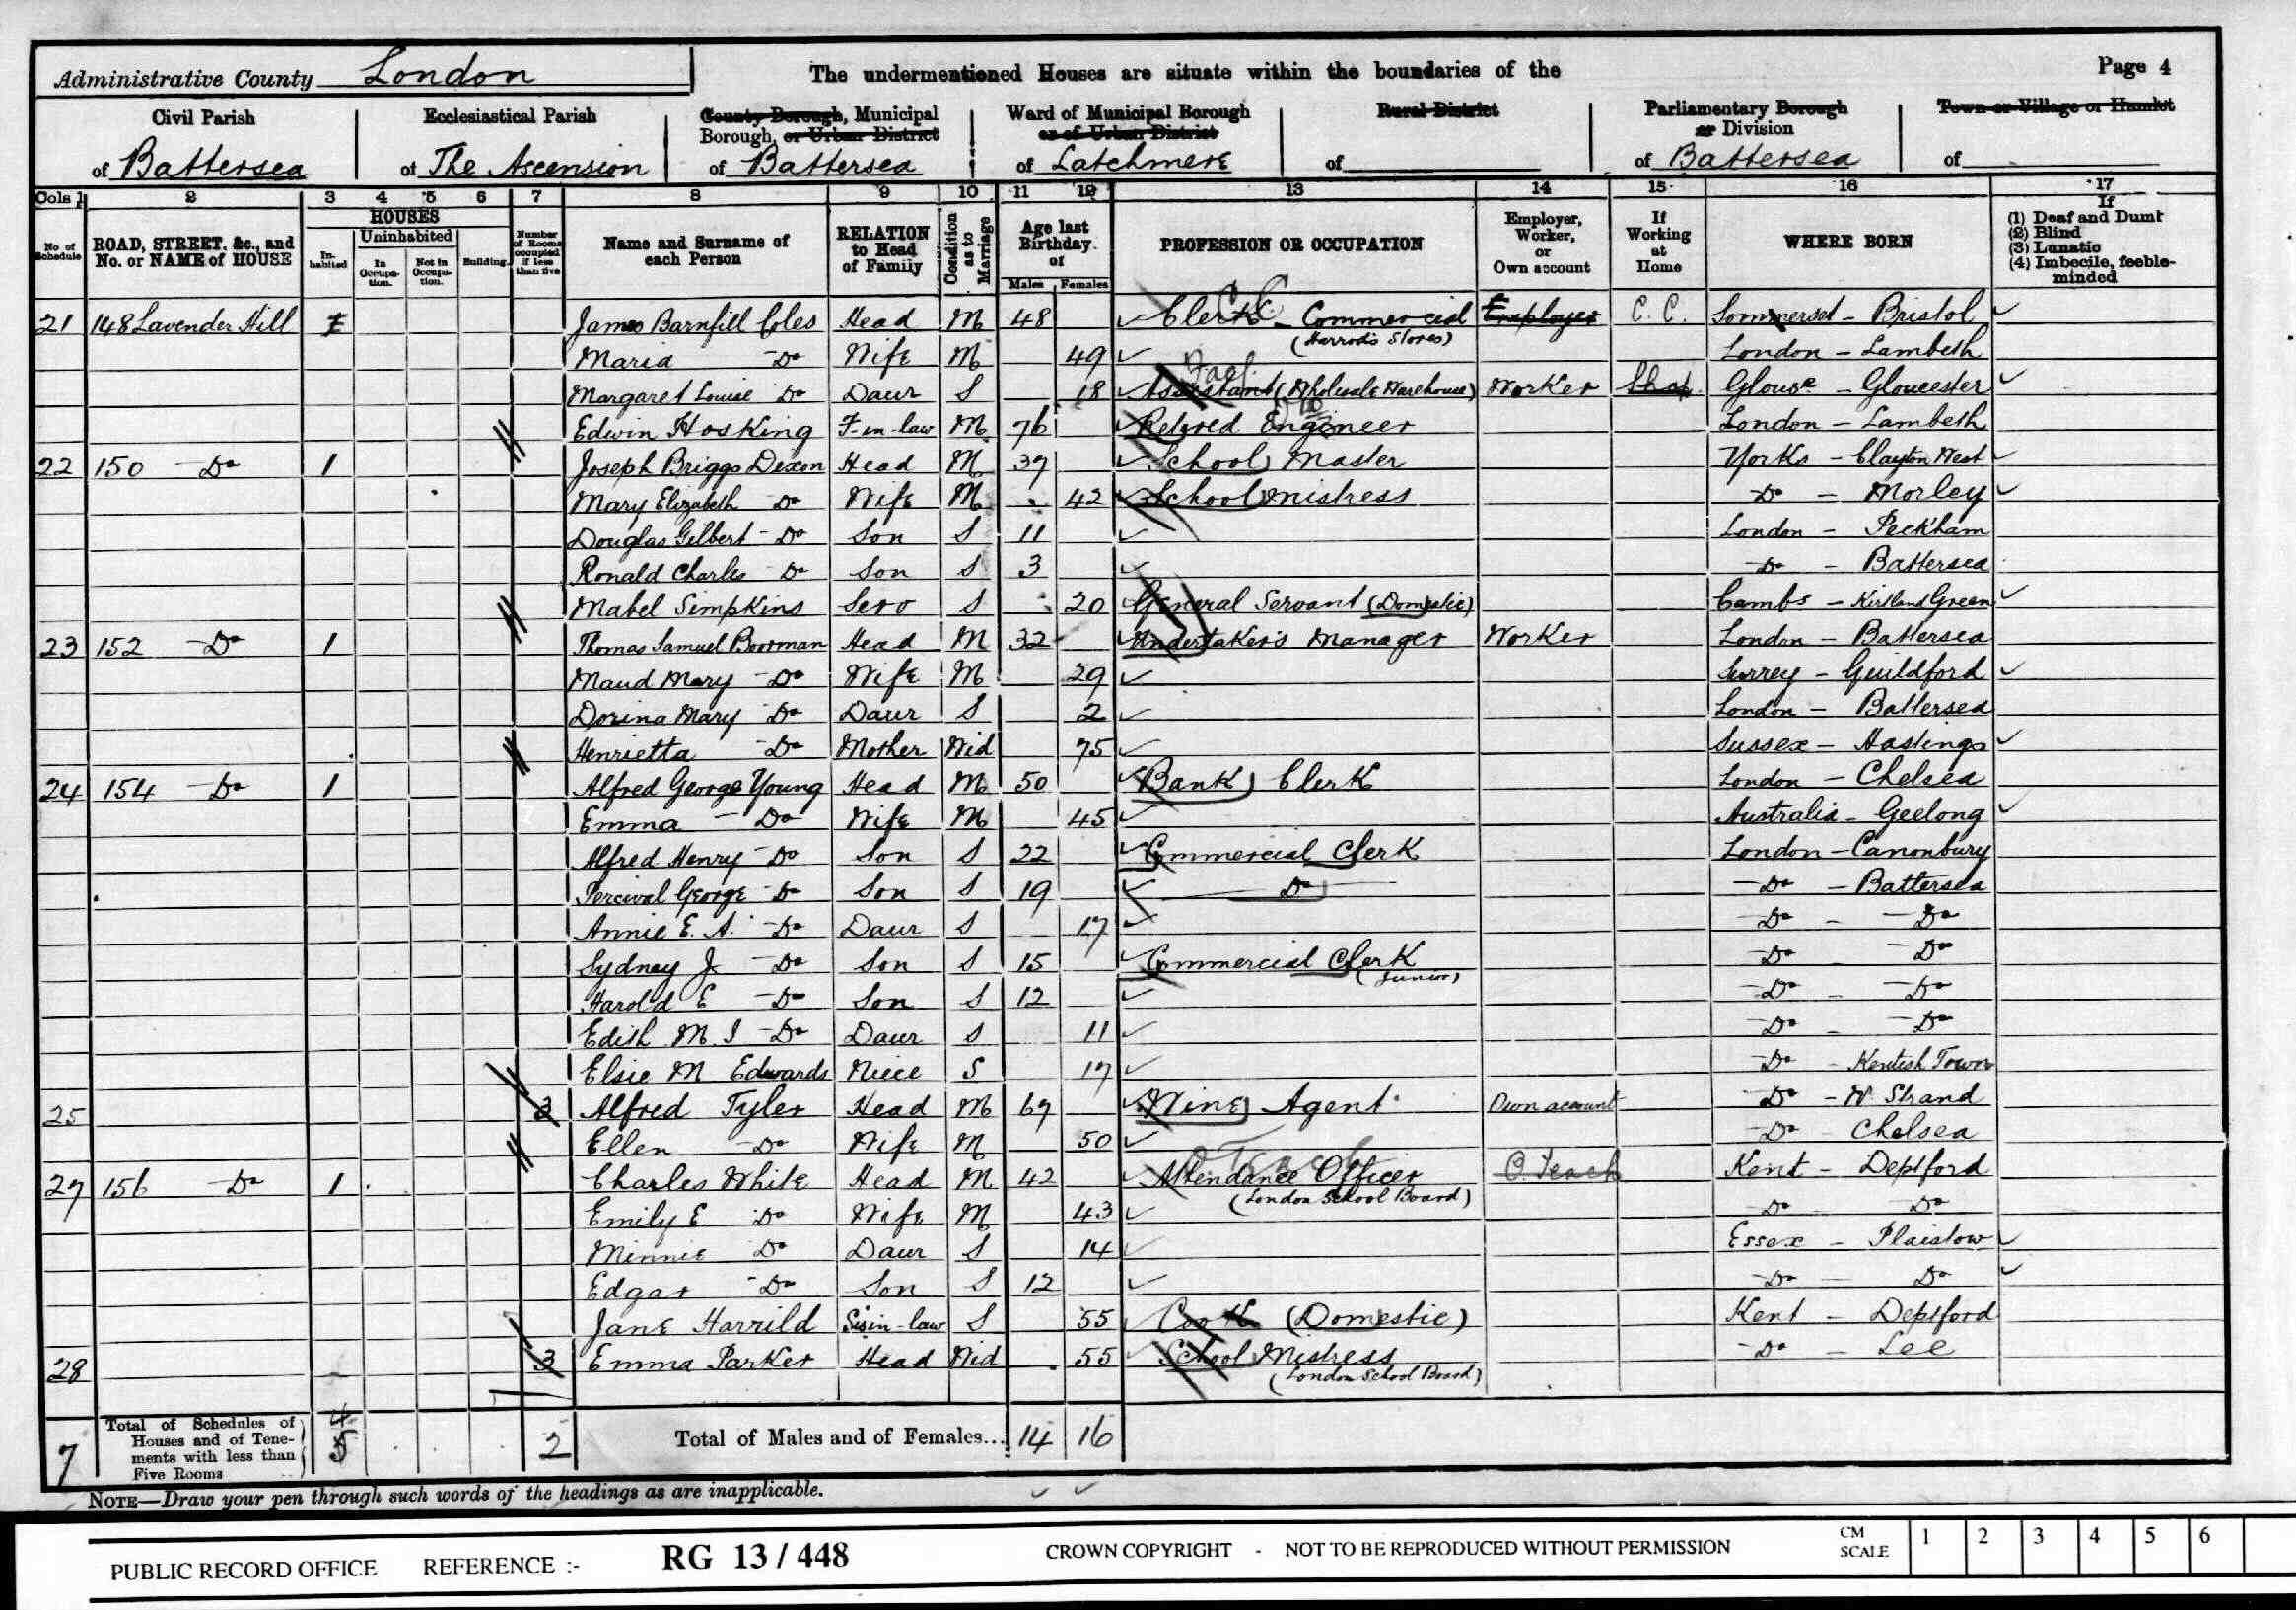 Administrative County London The undermentioned Houses are situate within the boundaries of the Page 4
Civil Parish Ecclesiastical Parish County Borough, Municipal Borough, or Urban District Ward of Municipal Borough or of Urban District Rural District Parliamentary Borough or Division Town or Village or Hamlet
of Battersea of The Ascension of Battersea of Latchmere of of Battersea of
Cols 1 2 3 4 5 6 7 8 9 10 11 12 13 14 15 16 17
No of Schedule ROAD, STREET, &c., and No. or NAME of HOUSE HOUSES Inhabited Uninhabited In Occupation. Not in Occupation. Building. Number of Rooms occupied if less than five Name and Surname of each Person RELATION to Head of Family Condition as to Marriage Age last Birthday of Males Females PROFESSION OR OCCUPATION Employer, Worker, or Own account If Working at Home WHERE BORN If (1) Deaf and Dumb (2) Blind (3) Lunatic (4) Imbecile, feeble-minded
21 148 Lavender Hill 1 James Barnfill Coles Head M 48 Clerk - Commercial (Harrod's Stores) Employer C. C. Sommerset - Bristol
Maria Do Wife M 49 London - Lambeth
Margaret Louise Do Daur S 18 Assistant (Wholesale Warehouse) Worker Glouse - Gloucester
Edwin Hosking F-in-law M 76 Retired Engineer London - Lambeth
22 150 Do 1 Joseph Briggs Dixon Head M 39 School Master Yorks - Clayton West
Mary Elizabeth Do Wife M 42 School Mistress Do - Morley
Douglas Gilbert Do Son S 11 London - Peckham
Ronald Charles Do Son S 3 Do - Battersea
Mabel Simpkins Serv S 20 General Servant (Domestic) Cambs - Kirtland Green
23 152 Do 1 Thomas Samuel Boorman Head M 32 Undertaker's Manager Worker London - Battersea
Maud Mary Do Wife M 29 Surrey - Guildford
Dorina Mary Do Daur S 2 London - Battersea
Henrietta Do Mother Wid 75 Sussex - Hastings
24 154 Do 1 Alfred George Young Head M 50 Bank Clerk London - Chelsea
Emma Do Wife M 45 Australia - Geelong
Alfred Henry Do Son S 22 Commercial Clerk London - Canonbury
Percival George Do Son S 19 Do Do - Battersea
Annie E. A. Do Daur S 17 Do - Do
Sydney J. Do Son S 15 Commercial Clerk (Junior) Do - Do
Harold E Do Son S 12 Do - Do
Edith M. I Do Daur S 11 Do - Do
Elsie M Edwards Niece S 17 Do - Kentish Town
25 3 Alfred Tyler Head M 67 Wine Agent Own account Do - W Strand
Ellen Do Wife M 50 Do Chelsea
27 156 Do 1 Charles White Head M 42 Attendance Officer (London School Board) O. Teach Kent - Deptford
Emily E. Do Wife M 43 Do Do
Minnie Do Daur S 14 Essex - Plaistow
Edgar Do Son S 12 Do Do
Jane Harrild Sis in-law S 55 Cook (Domestic) Kent - Deptford
28 3 Emma Parker Head Wid 55 School Mistress (London School Board) Do - Lee
7 Total of Schedules of Houses and of Tenements with less than Five Rooms 4 5 2 Total of Males and of Females... 14 16
NOTE—Draw your pen through such words of the headings as are inapplicable.
PUBLIC RECORD OFFICE REFERENCE :- RG 13 / 448 CROWN COPYRIGHT - NOT TO BE REPRODUCED WITHOUT PERMISSION CM SCALE 1 2 3 4 5 6